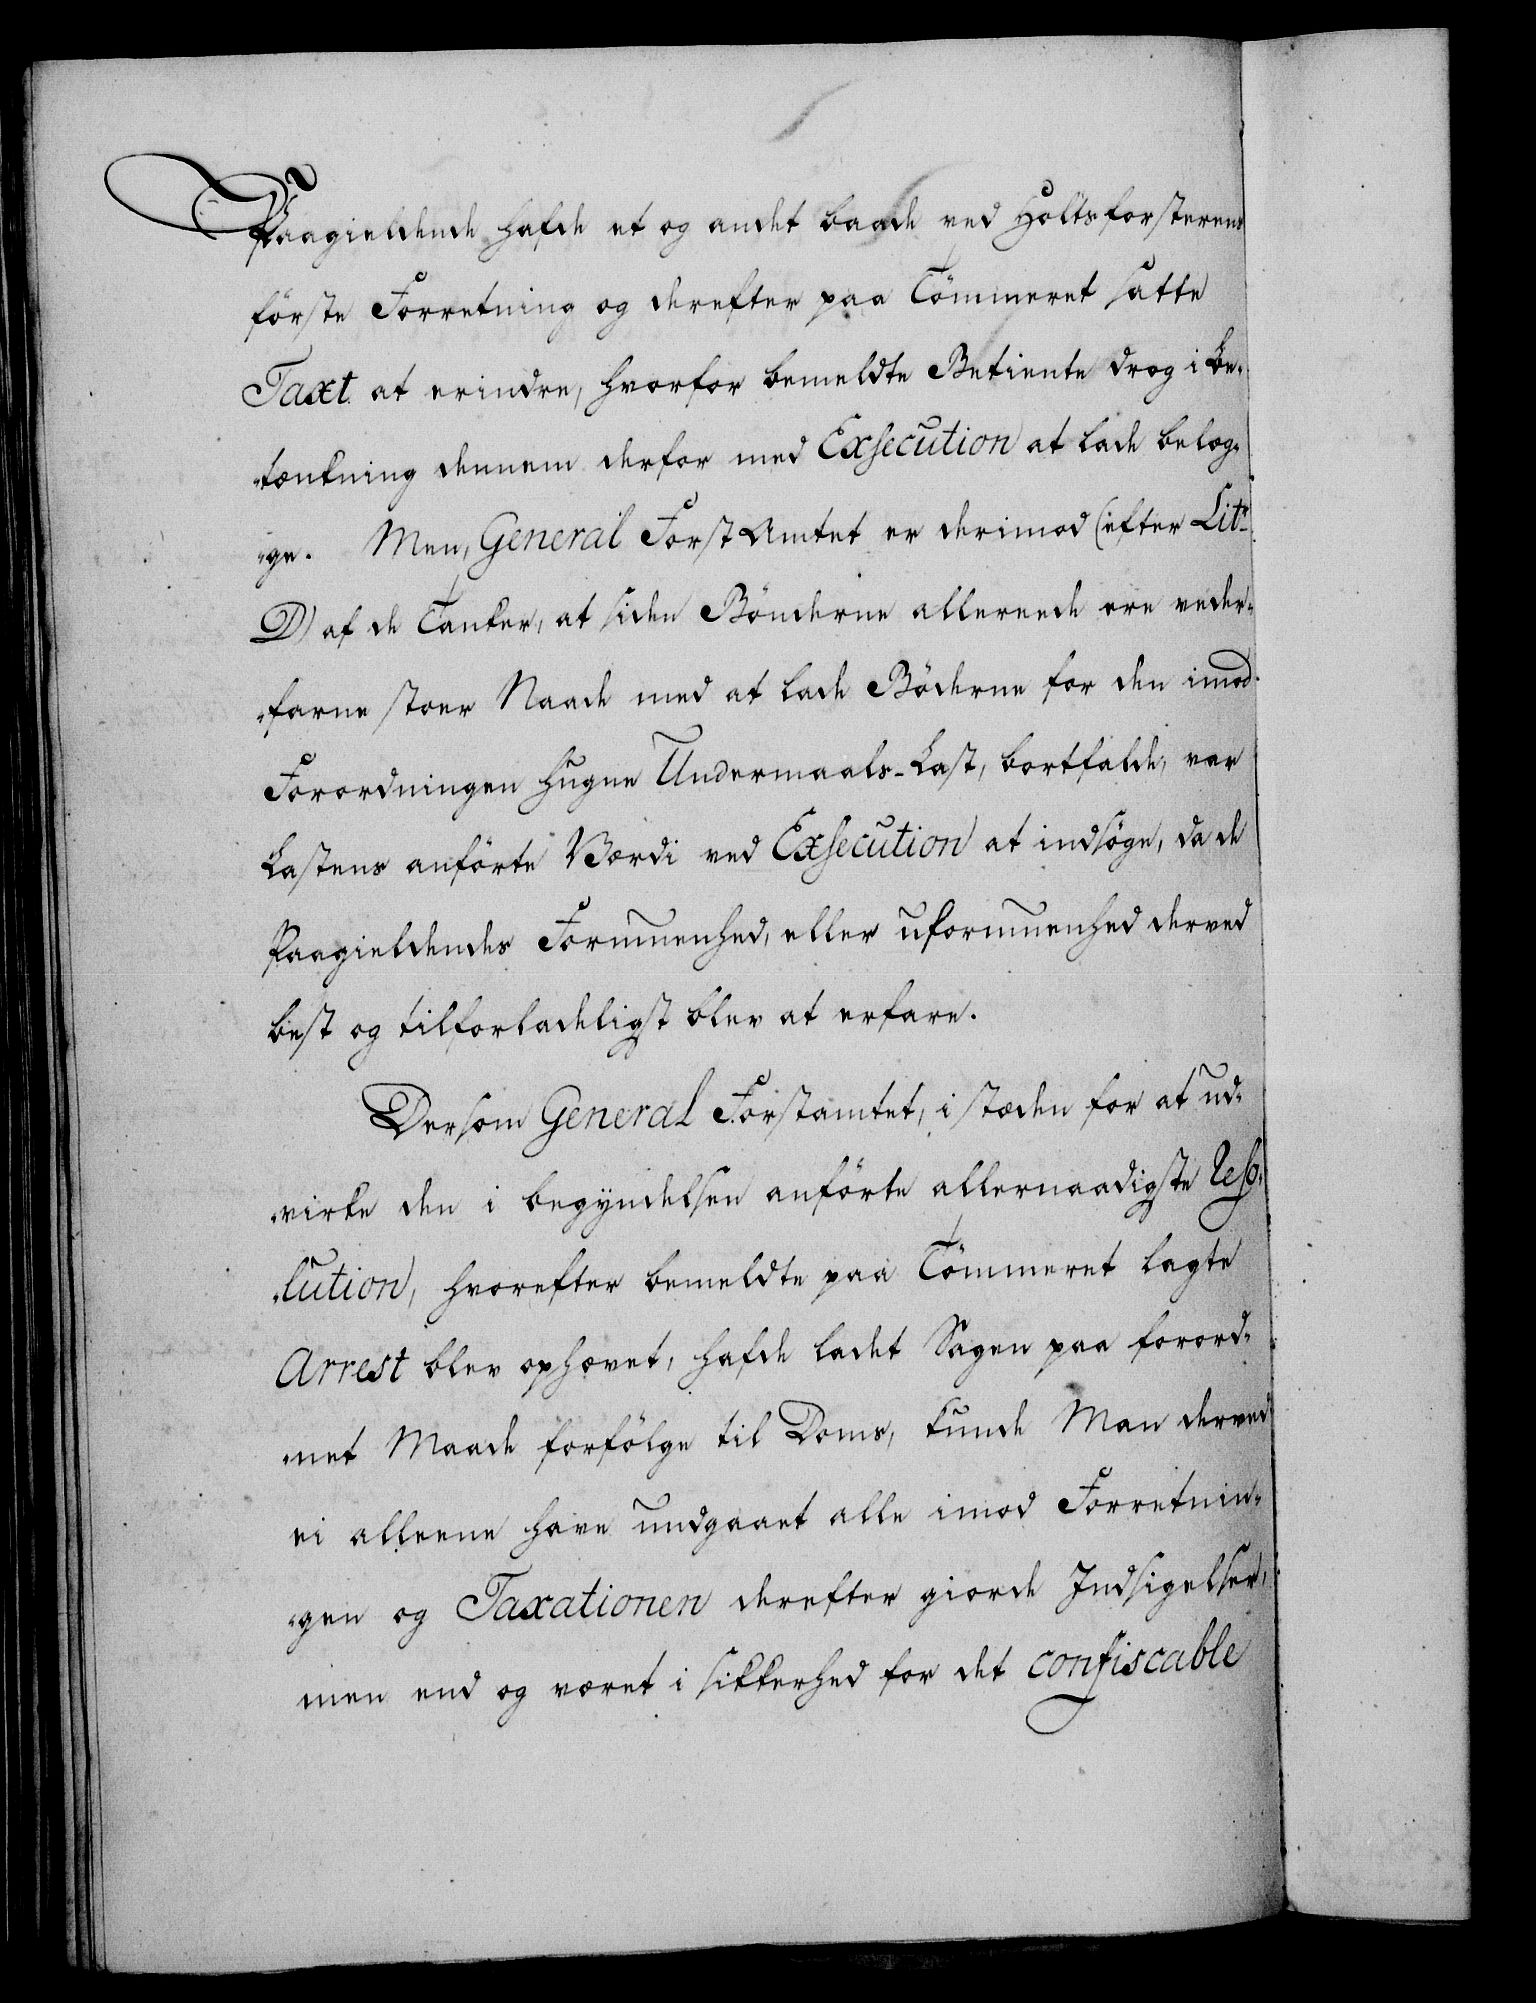 Paagieldende hafde et og andet baade ved Holtsforsterens
förste Forretning og derefter paa Tömmeret satte
Taxt at erindre, hvorfor bemeldte Betiente drog i be-
-tænkning dennem derfor med Exsecution at lade belæg-
-ge. Men, General Forst Amtet er derimod (efter Litr
D) af de Tanker, at siden Bönderne allereede ere veder-
-farne stoer Naade med at lade Böderne for den imod
Forordningen hugne Undermaals-Last, bortfalde, var
Lastens anförte Værdi ved Exsecution at indsöge, da de
Paagieldendes Formuenhed, eller uformuenhed derved
best og tilforladeligst blev at erfare.
Dersom General Forstamtet, i stæden for at ud-
-virke den i begyndelsen anförte allernaadigste Reso-
-lution, hvorefter bemeldte paa Tömmeret lagte
Arrest blev ophævet, hafde ladet Sagen paa forord-
-net Maade forfölge til Doms, kunde Man derved
ei alleene have undgaaet alle imod Forretnin-
-gen og Taxationen derefter giorde Indsigelser,
men end og været i sikkerhed for det confiscable